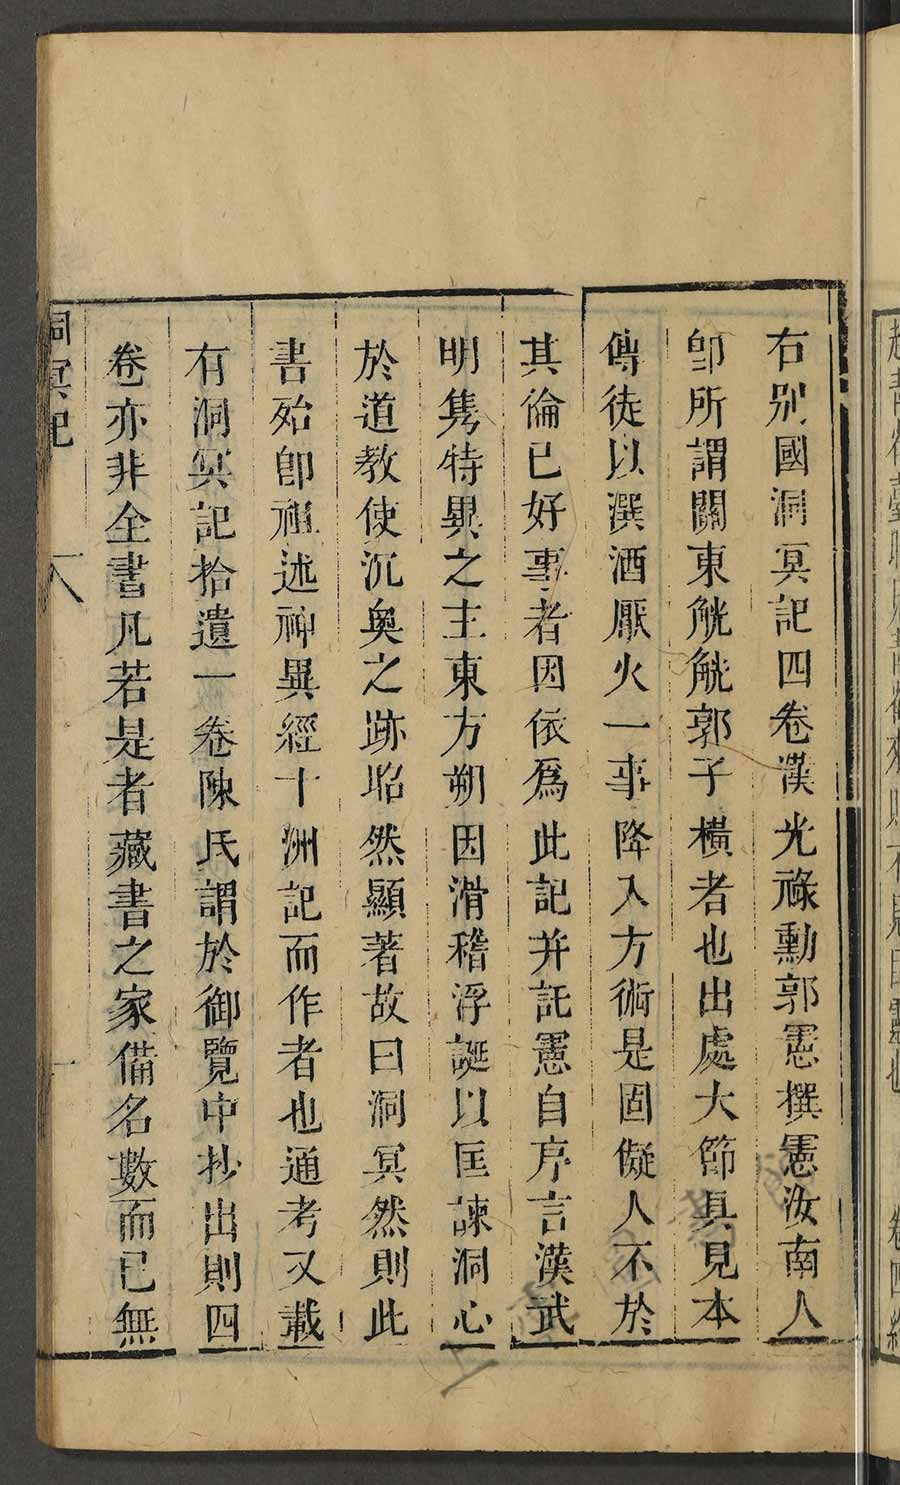 右別國洞冥記四卷漢光祿勳郭憲撰憲汝南人
卽所謂關東觥觥郭子橫者也出處大節具見本
傳徒以潠酒厭火一事降入方術是固儗人不於
其倫已好事者因依爲此記并託憲自序言漢武
明雋特異之主東方朔因滑稽浮誕以匡諫洞心
於道教使沉奧之跡昭然顯著故曰洞冥然則此
書殆卽祖述神異經十洲記而作者也通考又載
有洞冥記拾遺一卷陳氏謂於御覽中抄出則四
卷亦非全書凡若是者藏書之家備名數而已無
洞冥記 八 一